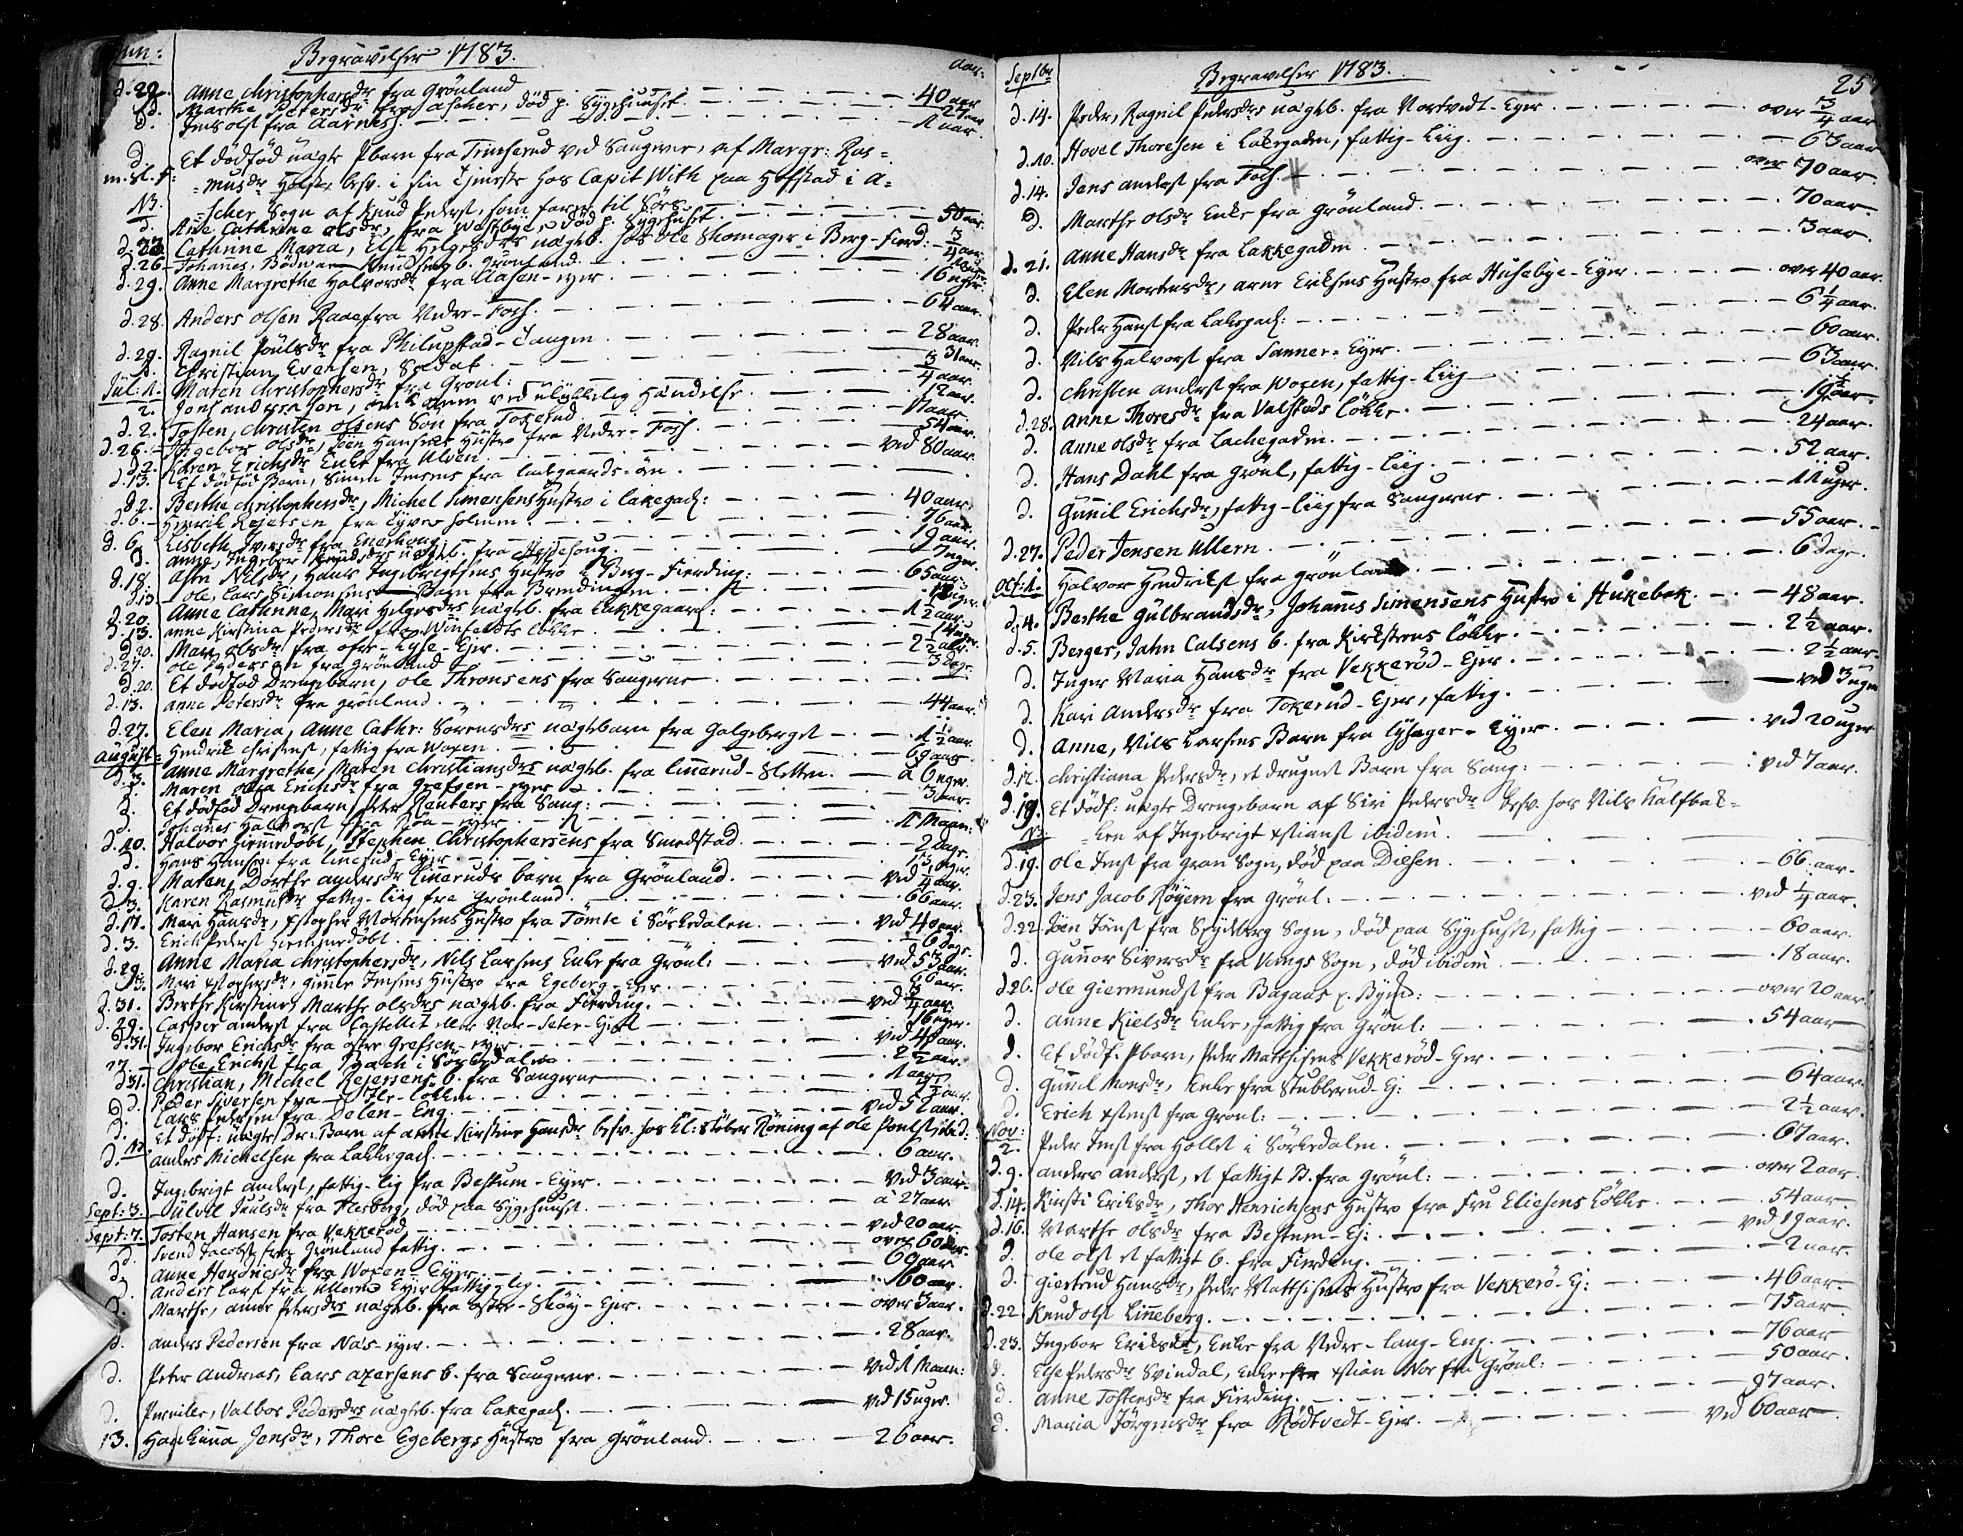 Jun:
Begravelser 1783.
aar:
d. 22. Anne Christophersdr fra Grönland 40 aar
d. Marthe Petersdr fra Ascher, död p. Sygehuuset 27 aar
d. Jens Olss fra Aarnes 1 aar.
d. Et dödföd uægte Pbarn fra Trinserud ved Saugerne, af Margr: Ras=
musdr Holst, besv. i sin Tieneste hos Capit With paa Hofstad i A=
13. scher Sogn af Knud Peders, som farer til Söes
d. Ane Cathrine Olsdr, fra Wæstbye, död p. Sygehuset 50 aar.
d. 23. Cathrine Maria, Else Helgesdrs uægteb. hos Ole Skomager i Berg-Fierd: 3/4 aar
d. 26. Johannes, Bödwar Knudsens b. Grönland
d. 29. Anne Margrethe Halvorsdr fra Aasen-eyer 16 uger.
d. 28. Anders Olsen Raae fra Vedre-Foss. 64 aar.
d. 29. Ragnil Poulsdr fra Philipstad-Tangen 28 aar.
d. Christian Evensen, Soldat 31 aar.
Jul: 1. Maren Christophersdr fra Grönl: 3/4 aar.
2. Jens Anderssön, omkommen ved ulykkelig Hændelse 12 aar.
d. 2. Tosten, Christen Olsens Sön fra Tokerud 17 aar.
d. 26. Ingebor Olsdr, Joen Hansens Hustro fra Vedre-Foss 54 aar.
d. 2. Karen Erichsdr Enke fra Ulven ved 80 aar.
d. 13. Et dödföd Barn, Simen Jensens fra Lakegaards-öen
d. 2. Berthe Christophersdr, Michel Simensens Hustro i Lakegad: 40 aar.
d. 6. Henrik Rejersen fra Tyveholmen 76 aar.
d. 6. Lisbeth Iversdr fra Enerhoug 19 aar.
d. Anne, Ingebor Knudsdrs uægteb. fra Appelsoug 7 uger.
d. 18. Asse Nilsdr, Hans Ingebrigtsens Hustro i Berg-Fierding: 65 aar.
d. 13. Ole, Lars Simonsens Barn fra Bryndingen
d. 20. Anne Cathrine, Mari Helgesdrs uægteb. fra Lakkegaard: 1 1/2 aar.
d. 13. Anne Kirstina Pedersdr fra Winfeldts Lökke
d. 20. Mari Olsdr fra ofre-Lyse-Ejer 2 1/2 aar.
d. 27. Ole Pedersen fra Grönland 3 dage.
d. 20. Et dödföd Drengebarn, Ole Thronsens fra Saugerne
d. 13. Anne Petersdr fra Grönland. 44 aar.
d. 27. Elen Maria, Anne Cathr: Sörensdrs uægtebarn fra Galgeberget 1 1/2 aar.
August: Hendrik Christens, fattig fra Woxen 69 aar
d. 3. Anne Margrethe, Maren Christiansdrs uægteb. fra Linerud-Sletten. à 6 uger.
d. Maren Olia Erichsdr fra Grefsen-eyer 3 aar.
d. Et dödföd Drengebarn, Peter Reuters fra Saug:
d. Johannes Halvorss fra Röa-eyer 1 Maan:
d. 10. Halvor Hiemdöbt, Stephen Christophersens fra Smedstad 2 Dage.
d. Hans Hansen fra Linerud-Eyer 13 uger.
d. 9. Maren Dorthe Andersdr Lineruds barn fra Grönland ved 1/4 aar.
d. 3. Karen Rasmusdr fattig-liig fra Grönland 66 aar.
d. 17. Mari Hansdr, Christopher Mortensens Hustro fra Tömte i Sörkedalen ved 40 aar.
d. 3. Erich Peders Hiemmedöbt 6 dage.
d. 29. Anne Maria Christophersdr, Nils Larsens Enke fra Grönl: ved 55 aar.
d. 31. Berthe Kirstine, Marthe Olsdrs uægteb. fra Fierding. ved 3/4 aar.
d. 29. Casper Anders fra Castellet eller Nor-Seter-Ejet 16 uger.
d. 31. Ingebor Erichsdr fra östre Grefsen-eyer ved 40 aar.
27. Ole Erichs fra Bach i Sörkedalen 2 1/2 aar.
d. 31. Christian, Michel Rejersens b. fra Saugerne 1 aar.
d. Peder Siversen fra Lökken 1/2 aar.
d. Lars Pedersen fra Delen-Eng ved 52 aar.
d. 10. Et dödf: uægte Dr: Barn af Anne Kirstine Hansdr besv. hos Kl: Stöber Röning af Ole Pouls ibid:
d. Anders Michelsen fra Lakkegad: 6 aar.
d. Ingebrigt Anders, fattig-lig fra Bestum-Eyer ved 3 aar.
Sept: 3. Ulvil Paulsdr fra Flesberg, död paa Sygehuuset à 27 aar
Sept: 7. Tosten Hansen fra Vekkeröd ved 20 aar.
Svend Jacobs fra Grönland fattig. over 60 aar.
d. Anne Hendricsdr fra Woxen-Eyer 69 aar
d. Anders Lars fra Ullern Eyer fattig-lig 60 aar.
d. Marthe, Anne Petersdrs uægteb. fra öster-Sköy-Ejer. over 3 aar.
d. Anders Pedersen fra Nas-eyer. 28 aar.
d. Peter Andreas, Lars Axersens b. fra Saugerne. ved 1 Maan:
d. Pernille, Valbor Pedersdrs uægteb. fra Lakegad: ved 15 uger.
13. Han Linna Jensdr, Thore Egebergs Hustro fra Grönland. 26 aar.
Septbr
Begravelser 1783.
257
d. 14. Peder, Ragnil Pedersdrs uægteb. fra Nortvedt-Eyer over 3/4 aar
d. 10. Hovel Thoresen i Lakegaden, fattig-Liig. 63 aar
d. 14. Jens Anders fra Foss over 70 aar.
d. Marthe Olsdr Enke fra Grönland 70 aar.
d. 21. Anne Hansdr fra Lakkegaden 3 aar.
d. Elen Mortensdr, Arne Eriksens Hustro fra Husebye-Eyer over 40 aar.
d. Peder Hans fra Lakegad: 6 1/4 aar.
d. Nils Halvors fra Sanner-Eyer 60 aar.
d. Christen Anders fra Woxen, fattig-Liig 63 aar.
d. 28. Anne Thoresdr fra Valstads Lökke 1 1/2 aar.
d. Anne Olsdr fra Lachegaden 24 aar.
d. Hans Dahl fra Grönl, fattig-liig. 52 aar.
d. Gunil Erichsdr, fattig-liig fra Saugerne 11 uger.
d. 27. Peder Jensen Ullern 55 aar.
Oct: 1. Halvor Hendriks fra Grönland 6 dage.
d. 4. Berthe Gulbrandsdr, Johannes Simensens Hustro i Hukebek 48 aar.
d. 5. Berger, Jahn Calsens b. fra Kirkstrens Lökke 2 1/2 aar.
d. Inger Maria Hansdr fra Vekkeröd-Ejer. 2 1/2 aar.
d. Kari Andersdr fra Tokerud-Ejer, fattig. ved 3 uger
d. Anne, Nils Larsens Barn fra Lysager-Eyer ved 20 uger
d. 12. Christiana Pedersdr, et druknet Barn fra Saug: ved 7 aar.
d. 19. Et dödf: uægte Drengebarn af Siri Pedersdr besv. hos Nils Kalfbak=
ken af Ingebrigt Xstians ibidem.
d. 19. Ole Jens fra Gran Sogn, död paa Diesen 66 aar.
d. 23. Jens Jacob Röyem fra Grönl. ved 1/4 aar.
d. 22. Joen Jöns fra Spydeberg Sogn, död paa Sygehuset, fattig 60 aar.
d. Gunnor Siversdr fra Vangs Sogn, död ibidem 18 aar.
d. 26. Ole Giermunds fra Bagaas p. Bygd: over 20 aar
d. Anne Kielsdr Enke, fattig fra Grönl: 54 aar
d. Et dödf. Pbarn, Peder Matthisens Vekkeröd-Eyer.
d. Gunil Monsdr, Enke fra Stubberud-Ej: 64 aar
d. Erich Xstens fra Grönl: 2 1/2 aar.
Nov: 2. Peder Jens fra Hollet i Sörkedalen 67 aar.
d. 9. Anders Anders, et fattigt B. fra Grönl: over 2 aar
d. 14. Kirsti Eriksdr, Thor Henrichsens Hustro fra Fru Eliesens Lökke 54 aar
d. 16. Marthe Olsdr fra Bestum-Ej: ved 19 aar.
d. Ole Ols et fattigt b. fra Fierding 2 aar.
d. Giertrud Hansdr, Peder Matthisens Hustro fra Vekkerö-Ej: 46 aar
d. 22. Knud Ols Linneberg 75 aar
d. 23. Ingebor Eriksdr, Enke fra Vedre-laug-Eng. 76 aar
d. Else Pedersdr Svindal, Enke efter Xstian Nor fra Grönl: 50 aar.
d. Anne Tostensdr fra Fierding. 97 aar.
d. Maria Jörgensdr fra Rödtvedt-Ejer. ved 60 aar